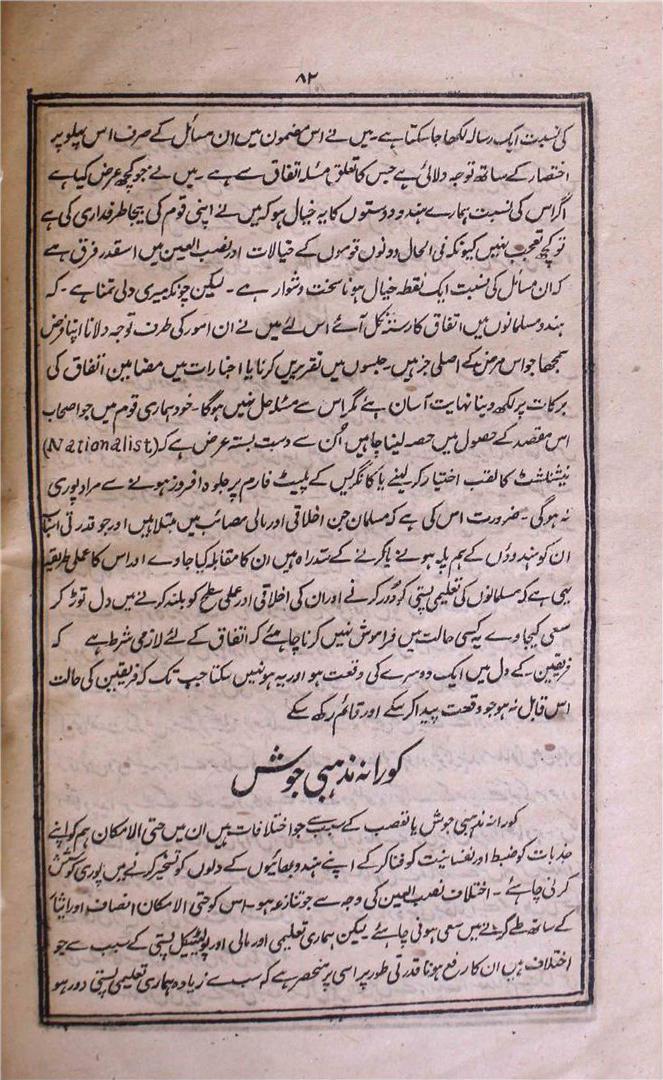 ۸۲
کی نسبت ایک رسالہ لکھا جا سکتا ہے۔ میں نے اس مضمون میں ان مسائل کے صرف اس پہلو پر
اختصار کے ساتھ توجہ دلائی ہے جس کا تعلق مسئلہ اتفاق سے ہے۔ میں نے جو کچھ عرض کیا ہے
اگر اس کی نسبت ہمارے ہندو دوستوں کا یہ خیال ہو کہ میں نے اپنی قوم کی بیجا طرفداری کی ہے
تو کچھ تعجب نہیں کیونکہ فی الحال دونوں قوموں کے خیالات اور نصب العین میں اسقدر فرق ہے
کہ ان مسائل کی نسبت ایک نقطہ خیال ہونا سخت دشوار ہے۔ لیکن چونکہ میری دلی تمنا ہے۔ کہ
ہندو مسلمانوں میں اتفاق کا رستہ نکل آئے اس لئے میں نے ان امور کی طرف توجہ دلانا اپنا فرض
سمجھا جو اس مرض کے اصلی جز ہیں۔ جلسوں میں تقریریں کرنا یا اخبارات میں مضامین اتفاق کی
برکات پر لکھ دینا نہایت آسان ہے مگر اس سے مسئلہ حل نہیں ہوگا۔ خود ہماری قوم میں جو اصحاب
اس مقصد کے حصول میں حصہ لینا چاہیں اُن سے دست بستہ عرض ہے کہ (Nationalist)
نیشنلسٹ کا لقب اختیار کر لینے یا کانگریس کے پلیٹ فارم پر جلوہ افروز ہونے سے مراد پوری
نہ ہوگی۔ ضرورت اس کی ہے کہ مسلمان جن اخلاقی اور مالی مصائب میں مبتلا ہیں اور جو قدرتی اسباب
ان کو ہندوؤں کے ہم پلہ ہونے یا کرنے کے سدراہ ہیں ان کا مقابلہ کیا جاوے اور اس کا عملی طریقہ
یہی ہے کہ مسلمانوں کی تعلیمی پستی کو دُور کرنے اور ان کی اخلاقی اور عملی سطح کو بلند کرنے میں دل توڑ کر
سعی کیجاوے یہ کسی حالت میں فراموش نہیں کرنا چاہئے کہ اتفاق کے لئے لازمی شرط ہے کہ
فریقین۔ کے دل میں ایک دوسرے کی وقعت ہو اور یہ ہو نہیں سکتا جب تک کہ فریقین کی حالت
اس قابل نہ ہو جو وقعت پیدا کر سکے اور قائم رکھ سکے
کورانہ مذہبی جوش
کورانہ مذہبی جوش یا تعصب کے سبب سے جو اختلافات ہیں ان میں حتی الامکان ہم کو اپنے
جذبات کو ضبط اور نفسانیت کو فنا کر کے اپنے ہندو بھائیوں کے دلوں کو تسخیر کرنے میں پوری کوشش
کرنی چاہئے۔ اختلاف نصب العین کی وجہ سے جو تنازعہ ہو۔ اس کو حتی الامکان انصاف اور ایثار
کے ساتھ طے کرنے میں سعی ہونی چاہئے۔ لیکن ہماری تعلیمی اور مالی اور پولیٹیکل پستی کے سبب سے جو
اختلاف ہیں ان کا رفع ہونا قدرتی طور پر اسی پر منحصر ہے کہ سب سے زیادہ ہماری تعلیمی پستی دور ہو